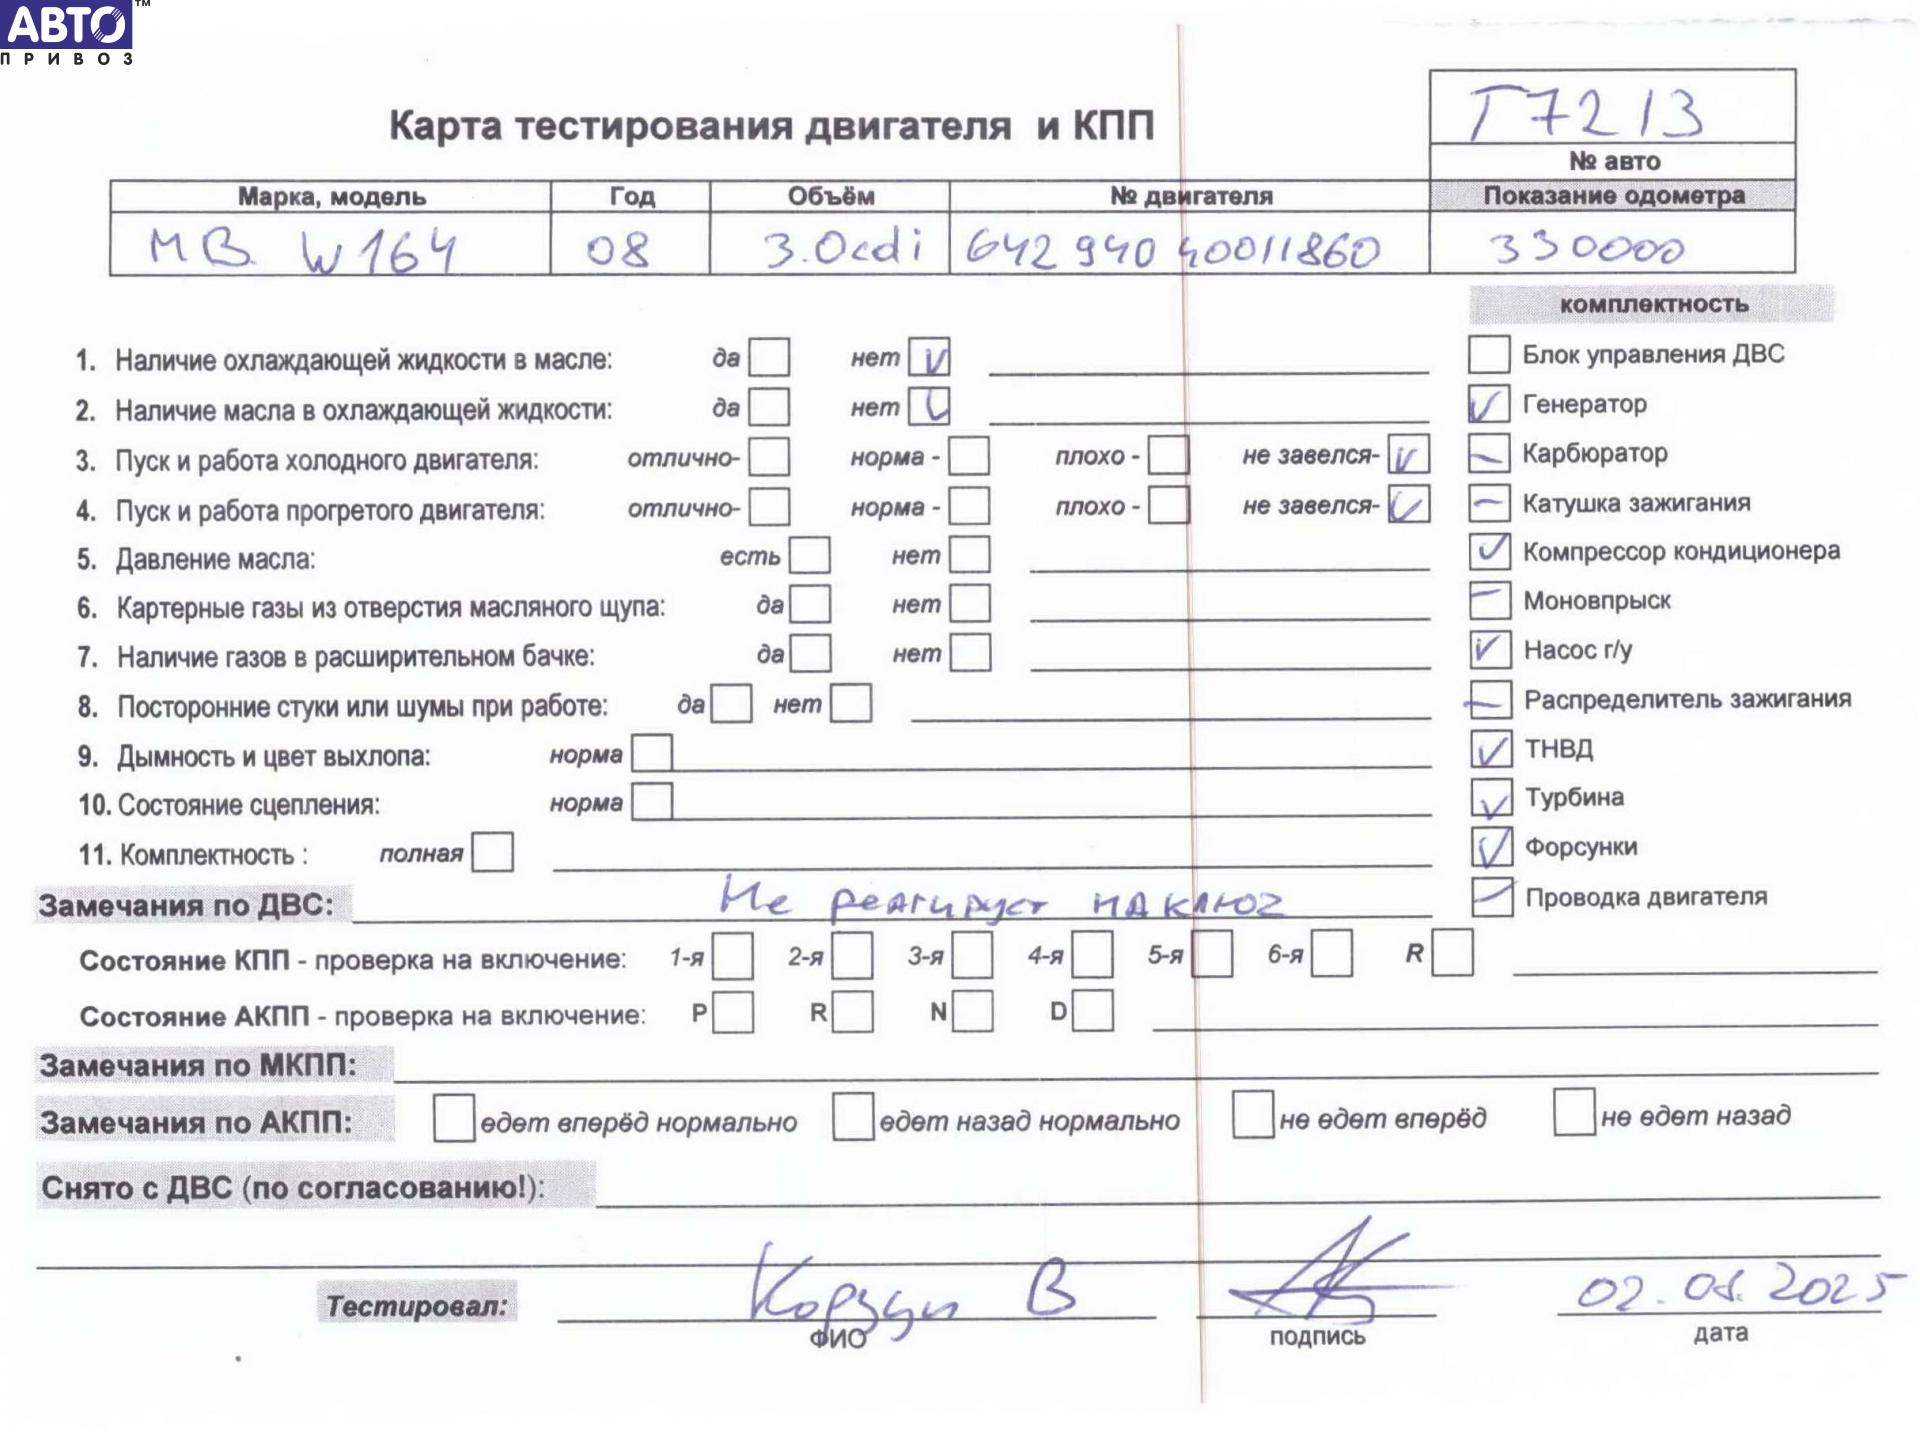 АВТО™
ПРИВОЗ
Т7213
Карта тестирования двигателя и КПП
№ авто
Марка, модель Год Объём № двигателя Показание одометра
MB W164 08 3.0cdi 642 940 40011860 330000
комплектность
1. Наличие охлаждающей жидкости в масле: да нет V Блок управления ДВС
2. Наличие масла в охлаждающей жидкости: да нет V V Генератор
3. Пуск и работа холодного двигателя: отлично- норма - плохо - не завелся- V - Карбюратор
4. Пуск и работа прогретого двигателя: отлично- норма - плохо - не завелся- V - Катушка зажигания
5. Давление масла: есть нет V Компрессор кондиционера
6. Картерные газы из отверстия масляного щупа: да нет - Моновпрыск
7. Наличие газов в расширительном бачке: да нет V Насос г/у
8. Посторонние стуки или шумы при работе: да нет - Распределитель зажигания
9. Дымность и цвет выхлопа: норма V ТНВД
10. Состояние сцепления: норма V Турбина
11. Комплектность : полная V Форсунки
Замечания по ДВС: Не реагирует на ключ - Проводка двигателя
Состояние КПП - проверка на включение: 1-я 2-я 3-я 4-я 5-я 6-я R
Состояние АКПП - проверка на включение: P R N D
Замечания по МКПП:
Замечания по АКПП: едет вперёд нормально едет назад нормально не едет вперёд не едет назад
Снято с ДВС (по согласованию!):
Тестировал: В 2025
ФИО подпись дата